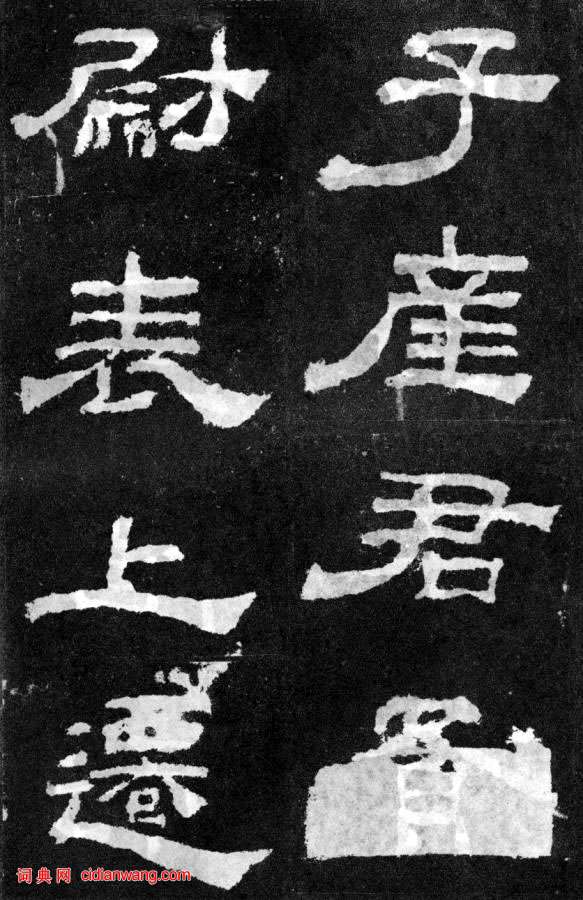 子產君
尉表上遷
词典网 cidianwang.com